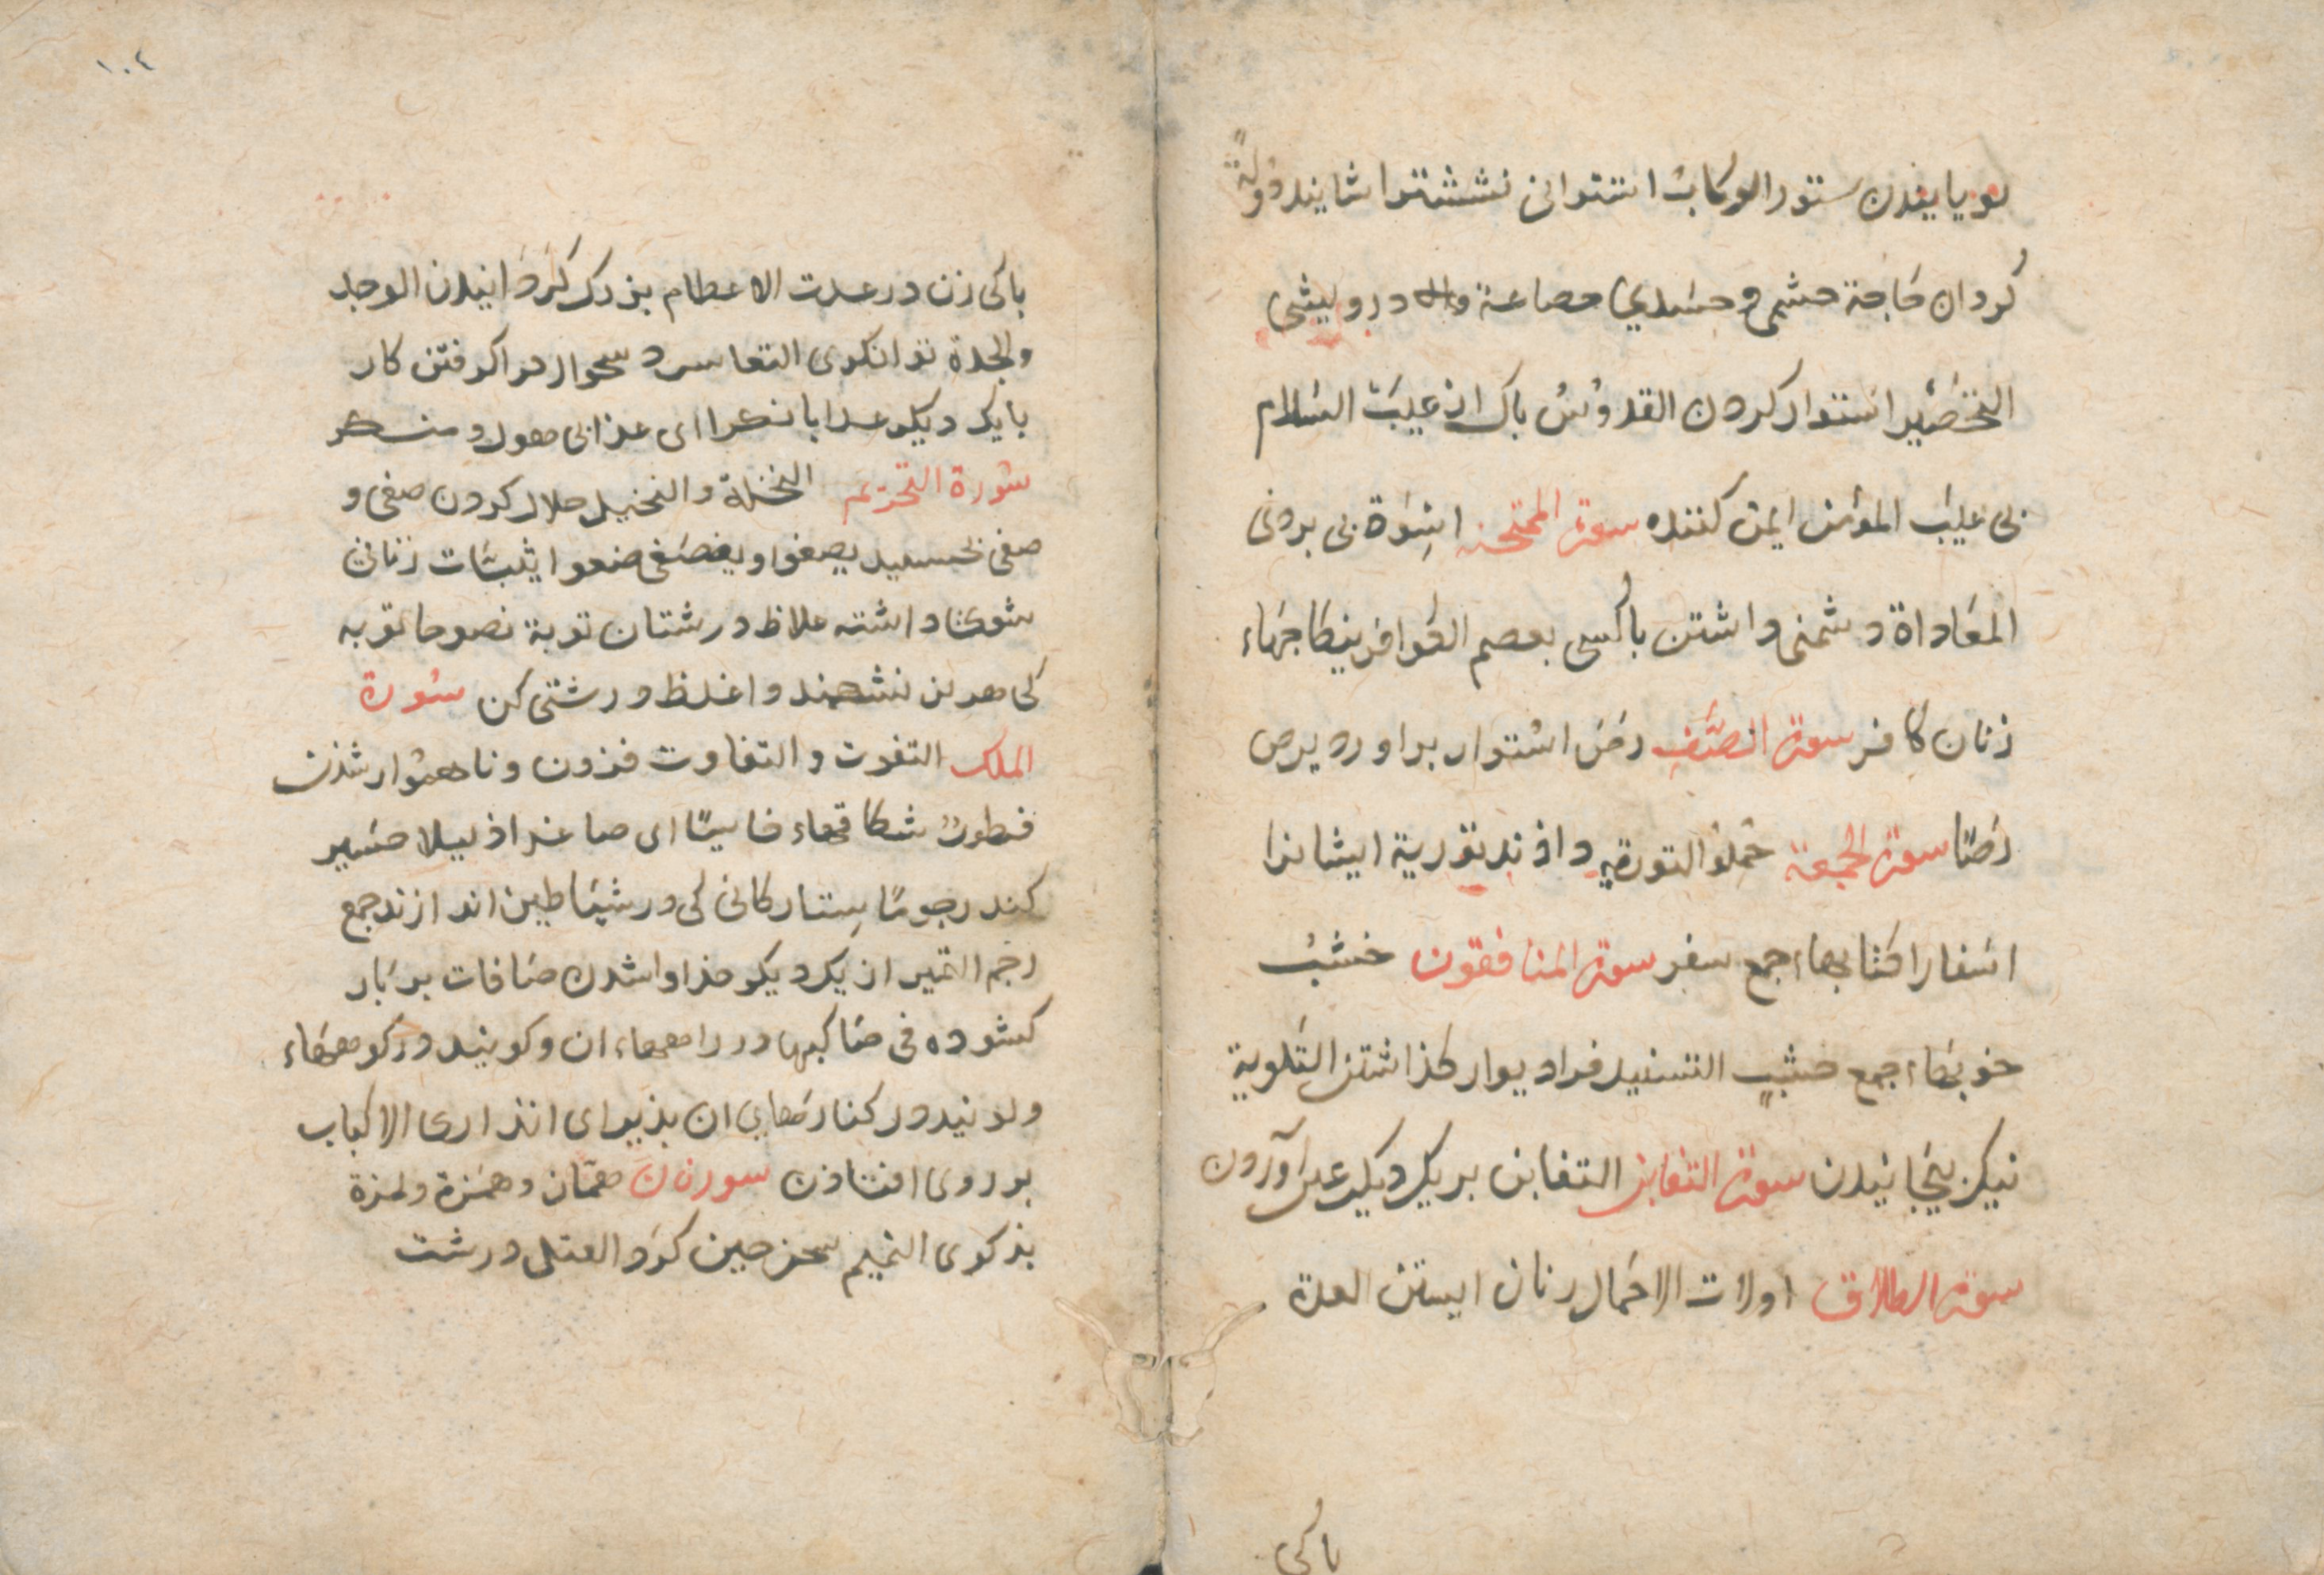 بويايندن ستور الركاب اشتوانى نشستنرا شايند دُولةً
كردان حَاجة حشمى و حسَدي خصاصة والا درويشى
التحصين استوار كردن القدوُسُ باك از عيبَ السَلام
بى عيبَ المؤمن ايمن كننده سورة الممتحنه اسِوَة بى بردنى
المعَاداة دشمنى داشتن باكسى بعصم الكوافر بنكاجهَاء
زنان كافر سورة الصَّف رصَ استوار براورد يرص
رَصًا سورة الجمعة حُملوا التورية داذند تورية ايشانرا
اسَفارا كتابهاء جمع سفر سورة المنافقون خشبُ
خوبهَاء جمع خشبٍ التسنيد فراديوار كذاشتن التلوية
نيك بيجَانيدن سورة التغابن التغابن بر يك ديكر غبن آوردن
سورة الطلاق اولات الاحَمال زنان ابستن العدة
باكى
١٠٤
باكى زن در عدت الاعظام بزرك كردَانيدن الوجد
والجدة توانكرى التعاسر دسخوار فراكرفتن كار
بايك ديكر عذابا نكرا اى عذابى مهول و منكر
سُورة التحريم التحلة والتحليل حلال كردن صغى و
صغى بحسبيد يصغوا ويصغى صغوا ثيبَات زنانى
شوىَ داشته غلاظ درشتان توبة نصوحا توبه
كى هرىن نشكنند واغلظ درشتى كن سُورة
الملك التفوت والتفاوت فزون و ناهموار شذن
فطور شكافهاء خاسئًا اى صاغرا ذليلا حسَير
كند رجومًا ستاركانى كى در شيَاطين اندازند جمع
رجم التميز از يك ديكر جذا واشدن صَافات برَبار
كشوده فى منَاكبها در راههاء ان و كويند در كوههَاء
و كويند در كنارهَهاىِ ان بذيراى انذارى الاكباب
بر روى افتاذن سورة ن همَّاز و همَزة و لمزة
بذكوى النميم سخن جين كرَد العتل درشت